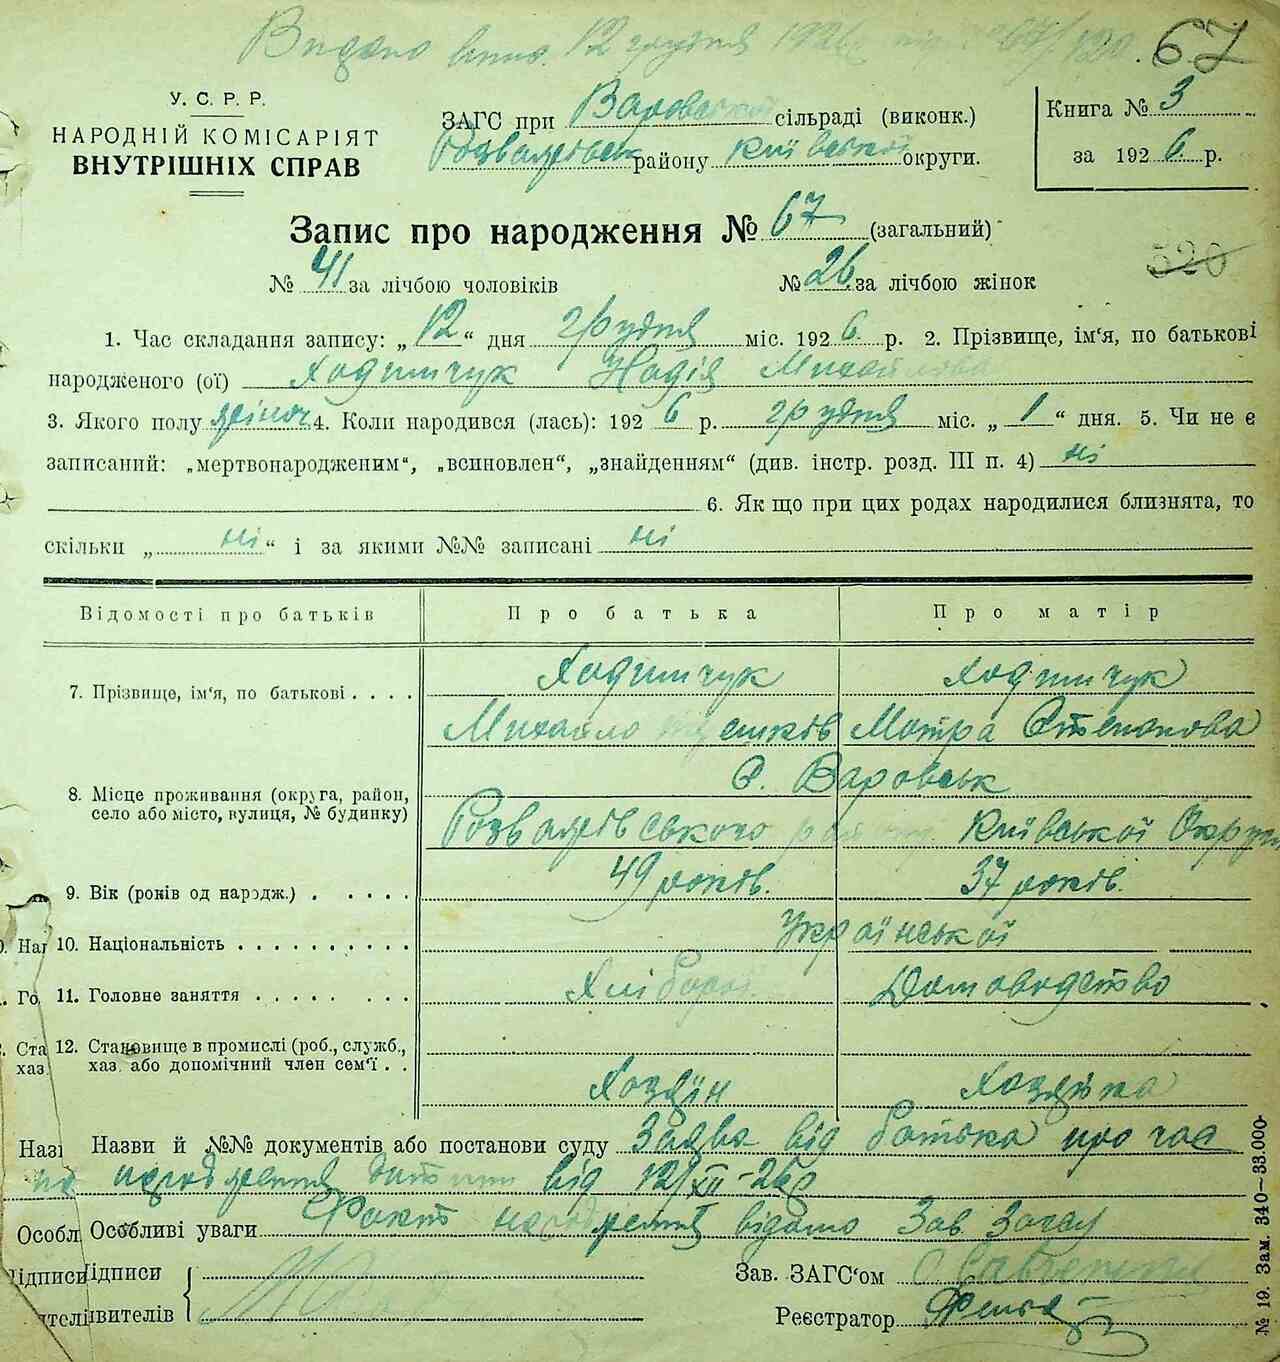 Видано 12 грудня 1926 67
У. С. Р. Р.
НАРОДНІЙ КОМІСАРІЯТ
ВНУТРІШНІХ СПРАВ
ЗАГС при сільраді (виконк.)
району Київської округи.
Книга № 3
за 1926 р.
Запис про народження № 67 (загальний)
520
№ 41 за лічбою чоловіків № 26 за лічбою жінок
1. Час складання запису: „12“ дня грудня міс. 1926 р. 2. Прізвище, ім‘я, по батькові
народженого (ої) Ходимчук Надія Михайлова
3. Якого полу жіноч 4. Коли народився (лась): 1926 р. грудня міс. „1“ дня. 5. Чи не є
записаний: „мертвонародженим“, „всиновлен“, „знайденням“ (див. інстр. розд. III п. 4) ні
6. Як що при цих родах народилися близнята, то
скільки „ні“ і за якими №№ записані ні
Відомості про батьків Про батька Про матір
7. Прізвище, ім‘я, по батькові . . . . Ходимчук Ходимчук
Михайло Мотра Степанова
С. Варовськ
8. Місце проживання (округа, район,
село або місто, вулиця, № будинку)
Розважівського району Київської Округи
9. Вік (років од народж.) . . . . . 49 років. 37 років.
10. Національність . . . . . . . . . . Української
11. Головне заняття . . . . . . . . Хлібороб Домоводство
12. Становище в промислі (роб., служб.,
хаз. або допомічний член сем‘ї . .
Хозяїн Хозяйка
Назви й №№ документів або постанови суду Заява від батька про час
народження дитини від 12/XII-26р
Особливі уваги Факт народження відомо Зав. Загсу
Підписи
Зав. ЗАГС‘ом
Реєстратор
№ 19. Зам. 340—33.000-